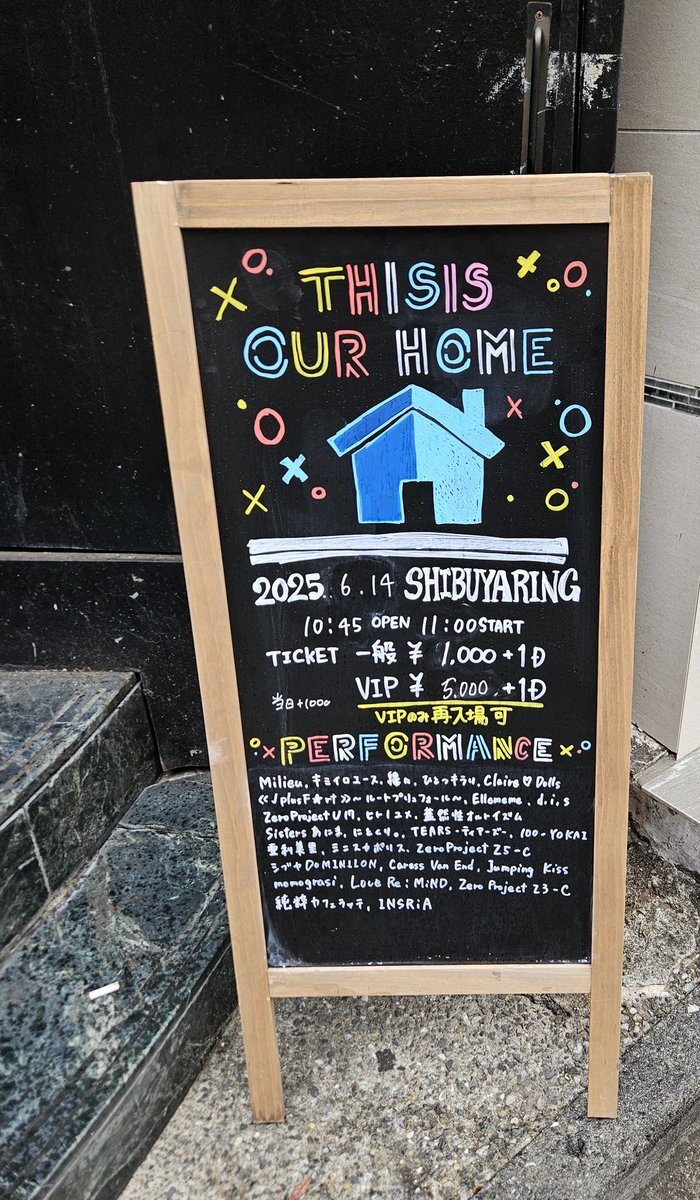 THISIS
OUR HOME
2025. 6.14 SHIBUYARING
10:45 OPEN 11:00START
TICKET 一般 ¥ 1,000+1D
VIP ¥ 5,000.+1D
当日+1000
VIPのみ再入場可
PERFORMANCE
Milieu. キミイロユース. 縁日. ひとつキラリ. Claire♡Dolls
≪√plusF★rt≫〜ルートプリュフォール〜, Ellememe. d.i.s
ZeroProject VM. ヒトノユメ. 蓋然性オルトイズム
Sisters あにま. にととり. TEARS-ティアーズ-. 100-YOKAI
亜利美里. ミニスナポリス. ZeroProject ZS-C
シブヤDOMINION, Caress Van End, Jumping Kiss
monograsi. Love Re:MiND. Zero Project Z3-C
純粋カフェラッテ, INSRiA